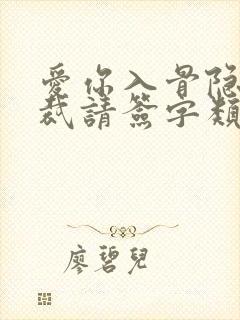 愛你入骨隐
裁請簽字類
廖碧兒